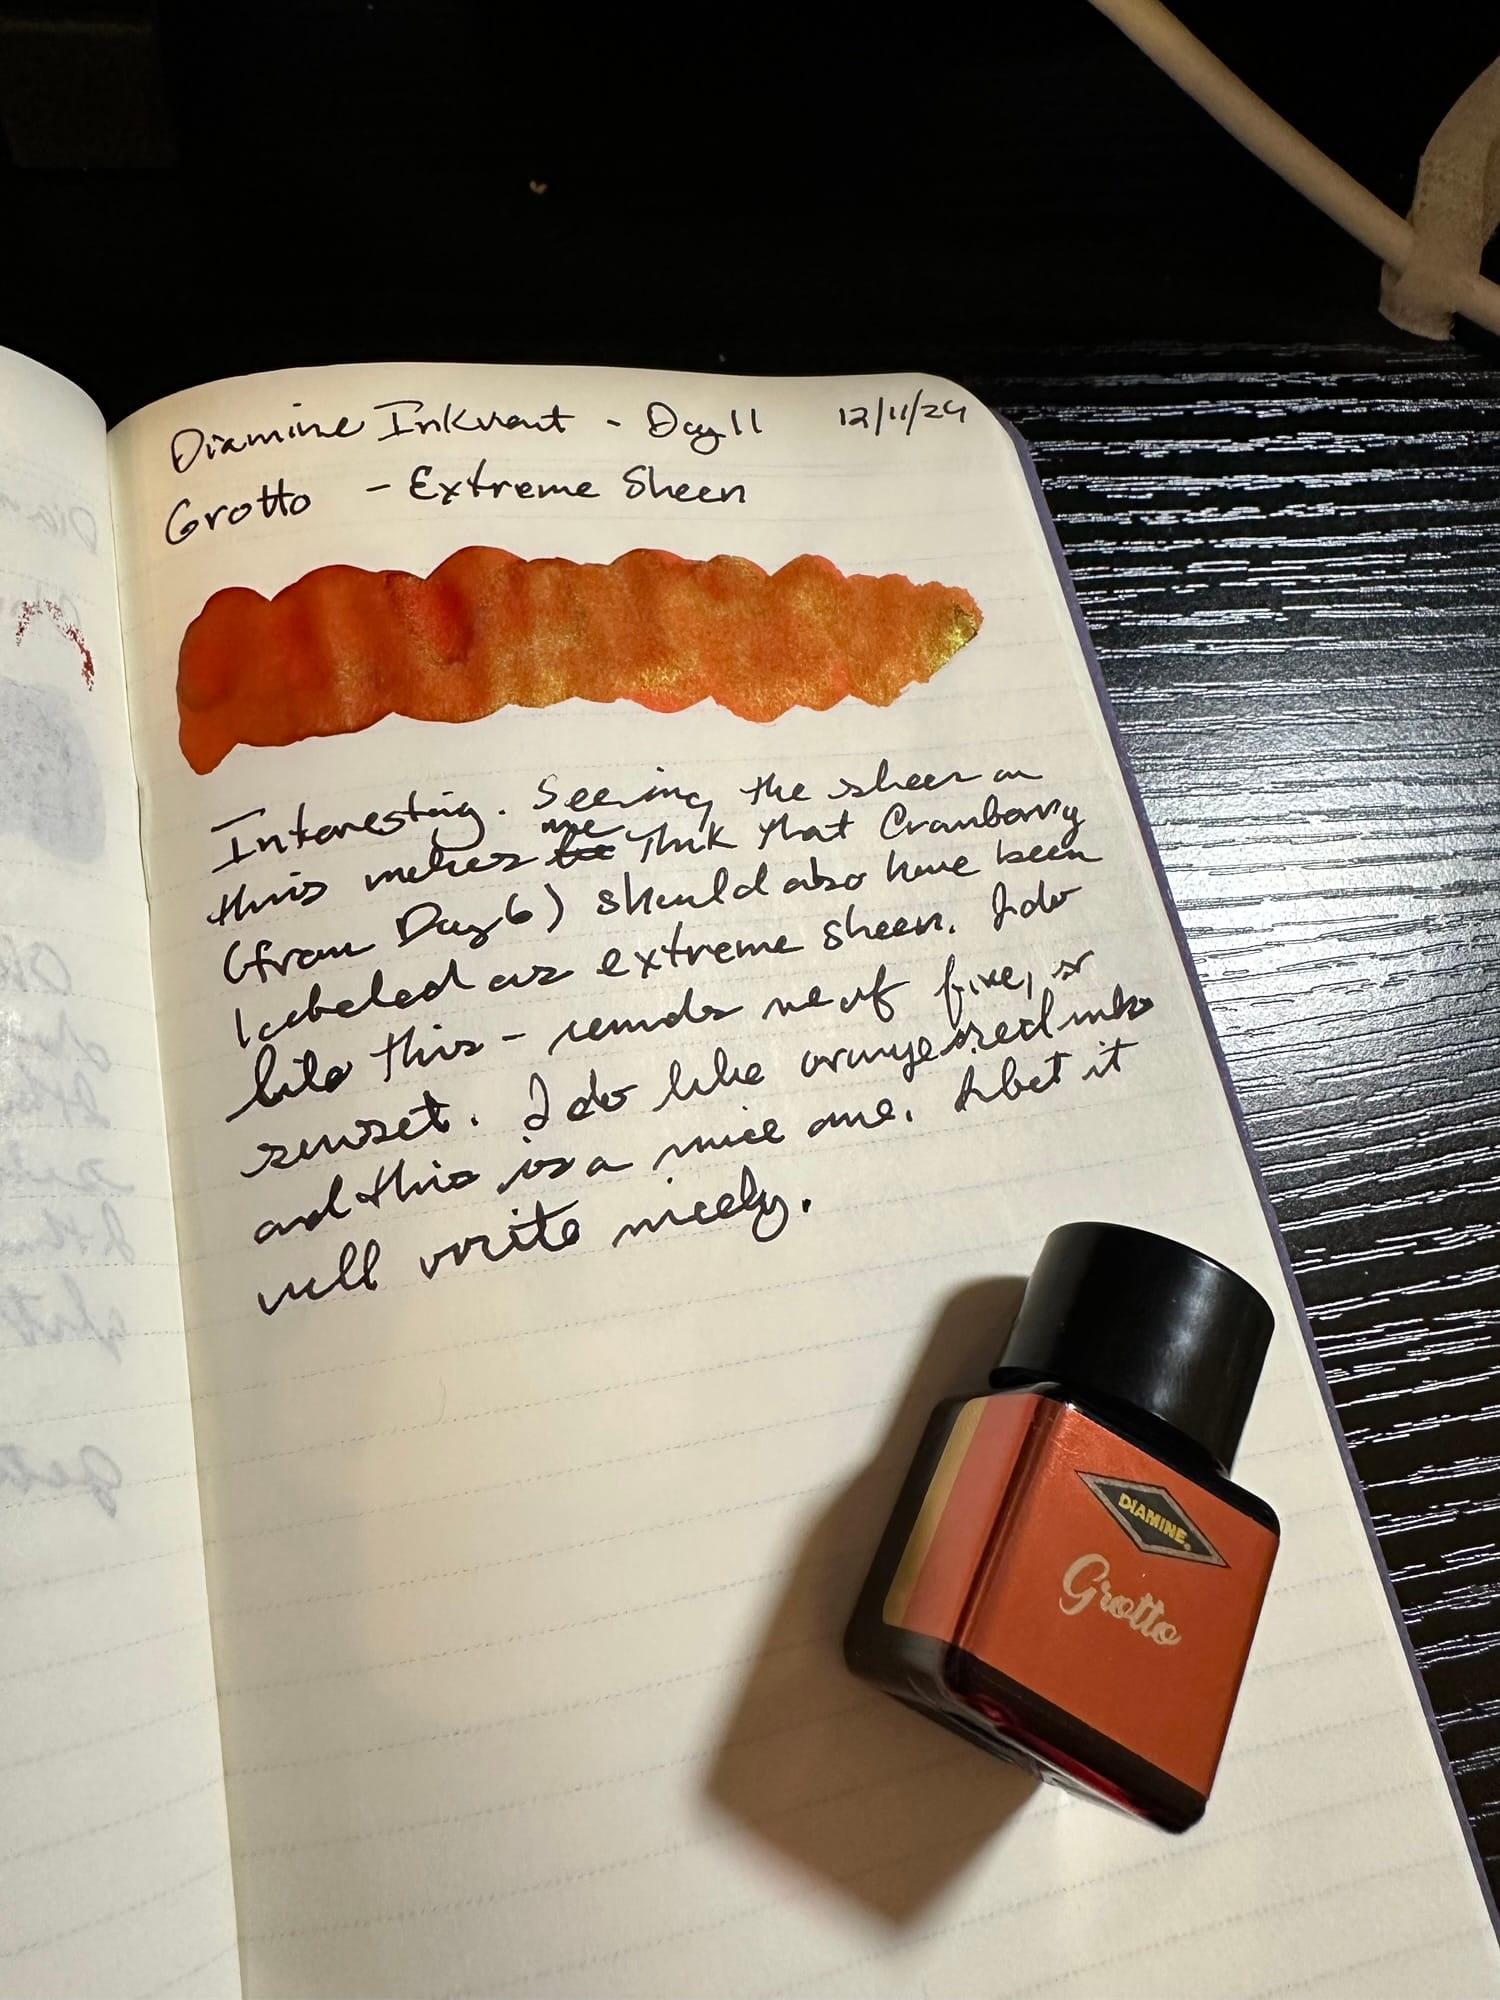 Diamine Inkvent - Day 11 12/11/24
Grotto - Extreme Sheen
Interesting. Seeing the sheen on
this makes me think that Cranberry
(from Day 6) should also have been
labeled as extreme sheen. I do
like this - reminds me of fire, or
sunset. I do like orange red inks
and this is a nice one. I bet it
will write nicely.
DIAMINE
Grotto